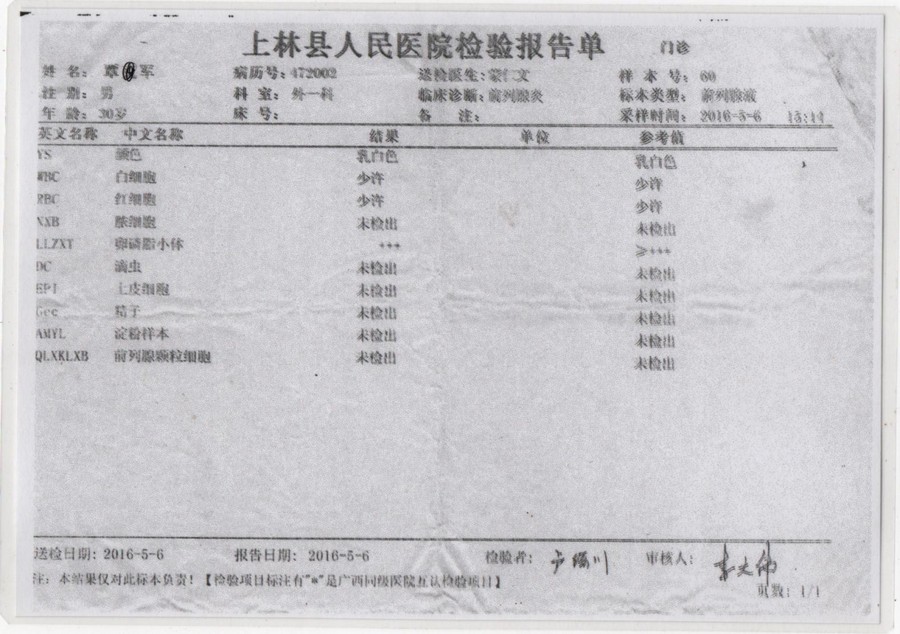 上林县人民医院检验报告单 门诊
姓 名: 覃 军 病历号: 472002 送检医生: 蒙仁文 样 本 号: 60
性 别: 男 科 室: 外一科 临床诊断: 前列腺炎 标本类型: 前列腺液
年 龄: 30岁 床 号: 备 注: 采样时间: 2016-5-6 15:14
英文名称 中文名称 结果 单位 参考值
YS 颜色 乳白色 乳白色
WBC 白细胞 少许 少许
RBC 红细胞 少许 少许
NXB 脓细胞 未检出 未检出
LLZXT 卵磷脂小体 +++ ≥+++
DC 滴虫 未检出 未检出
EPI 上皮细胞 未检出 未检出
精子 未检出 未检出
AMYL 淀粉样本 未检出 未检出
QLXKLXB 前列腺颗粒细胞 未检出 未检出
送检日期: 2016-5-6 报告日期: 2016-5-6 检验者: 审核人:
注: 本结果仅对此标本负责!【检验项目标注有"*"是广西同级医院互认检验项目】
页数: 1/1